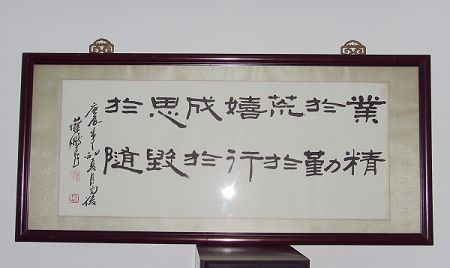 業精
於勤
荒於
嬉行
成於
思毀
於隨
庚辰年